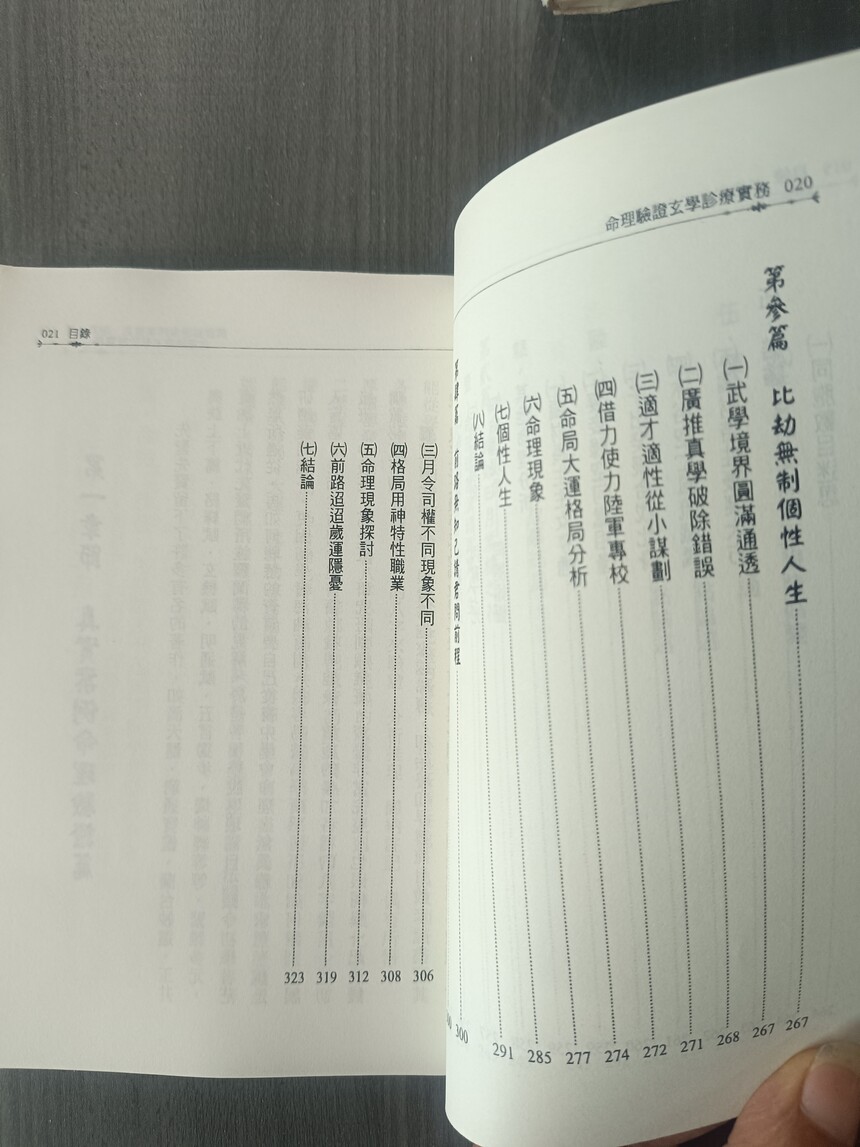 命理驗證玄學診療實務 020
第參篇 比劫無制個性人生 267
㈠武學境界圓滿通透 267
㈡廣推真學破除錯誤 268
㈢適才適性從小謀劃 271
㈣借力使力陸軍專校 272
㈤命局大運格局分析 274
㈥命理現象 277
㈦個性人生 285
㈧結論 291
300
021 目錄
㈢月令司權不同現象不同 306
㈣格局用神特性職業 308
㈤命理現象探討 312
㈥前路迢迢歲運隱憂 319
㈦結論 323